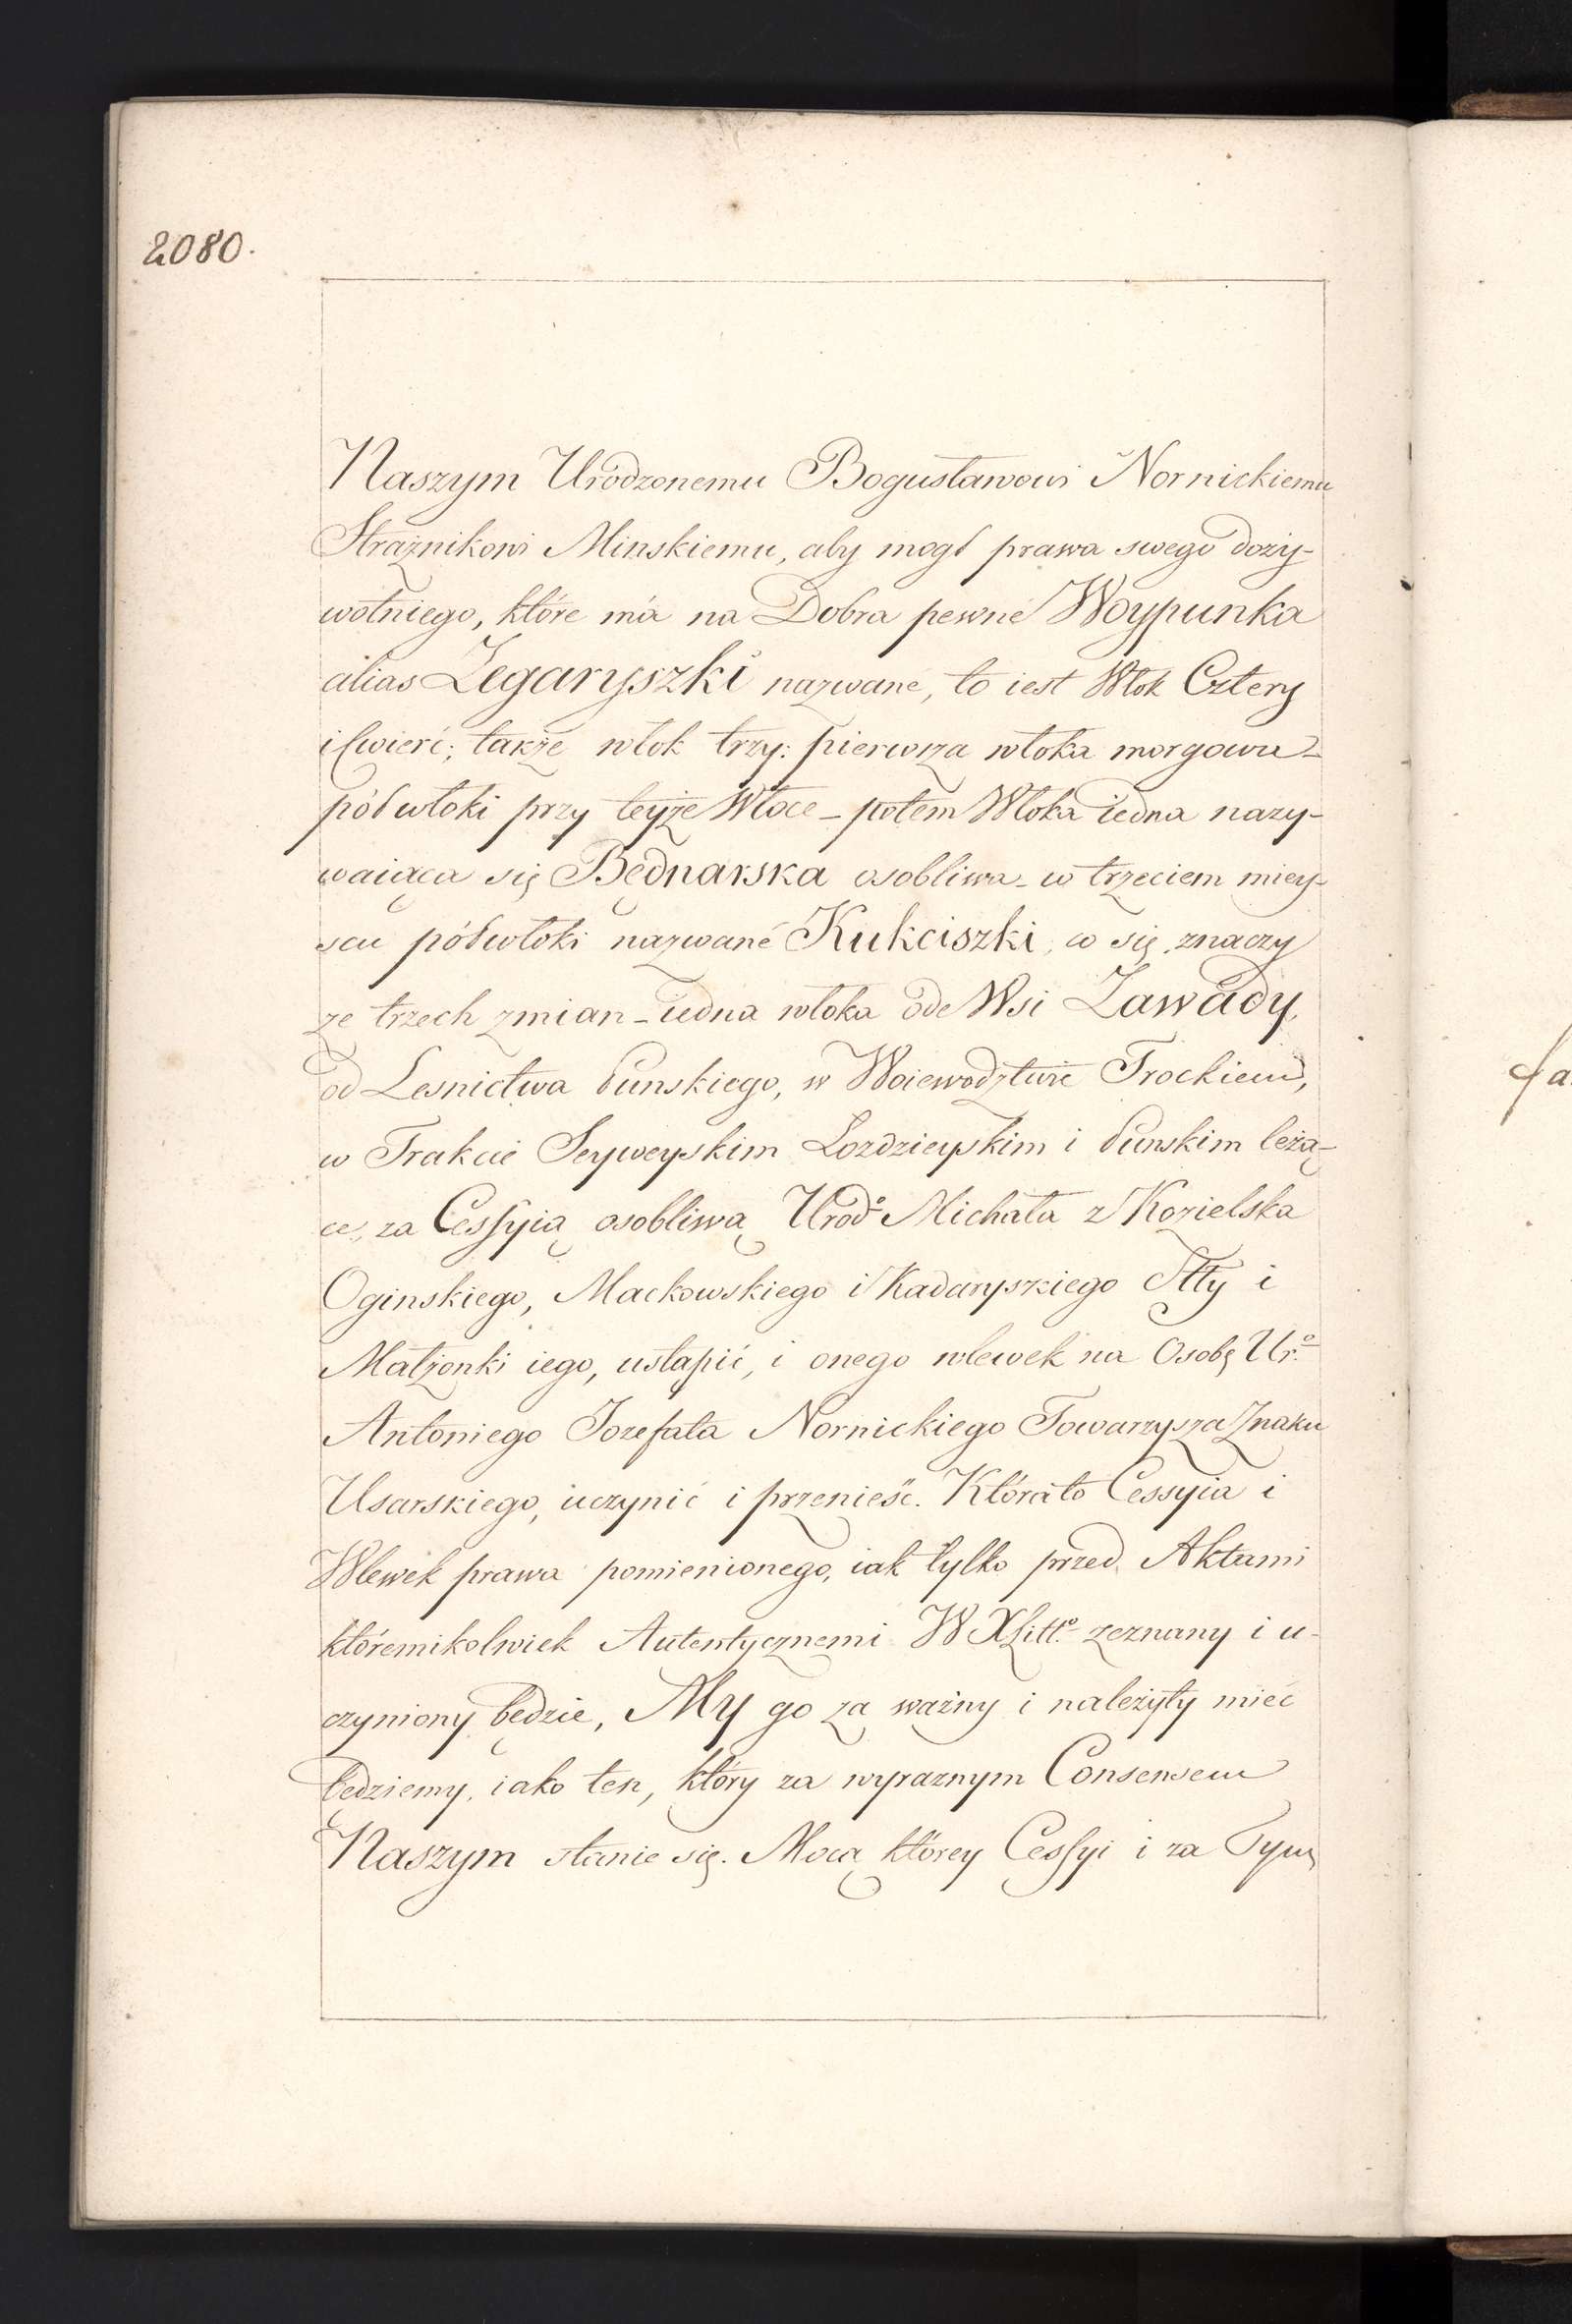 2080.
Naszym Urodzonemu Bogusławowi Nornickiemu
Strażnikowi Minskiemu, aby mogł prawa swego doży-
wotniego, które má na Dobra pewne Woypunka
alias Zegaryszki nazwane, to iest Włok Cztery
i Ćwierć; także włok trzy: pierwsza włoka morgowa-
pół włoki przy teyże Włoce - potem Włoka iedna nazy-
waiąca się Będnarska osobliwa - w trzeciem miey-
scu półwłoki nazwané Kukciszki, co się znaczy
ze trzech zmian - iedna włoka ode Wsi Zawady,
od Lesnictwa Sunskiego, w Woiewodztwie Trockiem,
w Trakcie Seyweyskim Lozdzieyskim i Sunskim leżą-
ce, za Cessyią osobliwą Urod.o Michała z Kozielska
Oginskiego, Mackowskiego i Kadaryszkiego Stty i
Małżonki iego, ustąpić, i onego wlewek na Osobę Ur.o
Antoniego Jozefata Nornickiego Towarzysza Znaku
Usarskiego, uczynić i przenieść. Któráto Cessyia i
Wlewek prawa pomienionego, iak tylko przed Aktami
któremikolwiek Autentycznemi W X Litt.o zeznany i u-
czyniony będzie, My go za ważny i należyty mieć
będziemy, iako ten, który za wyraznym Consensem
Naszym stanie się. Mocą którey Cessyi i za Tym